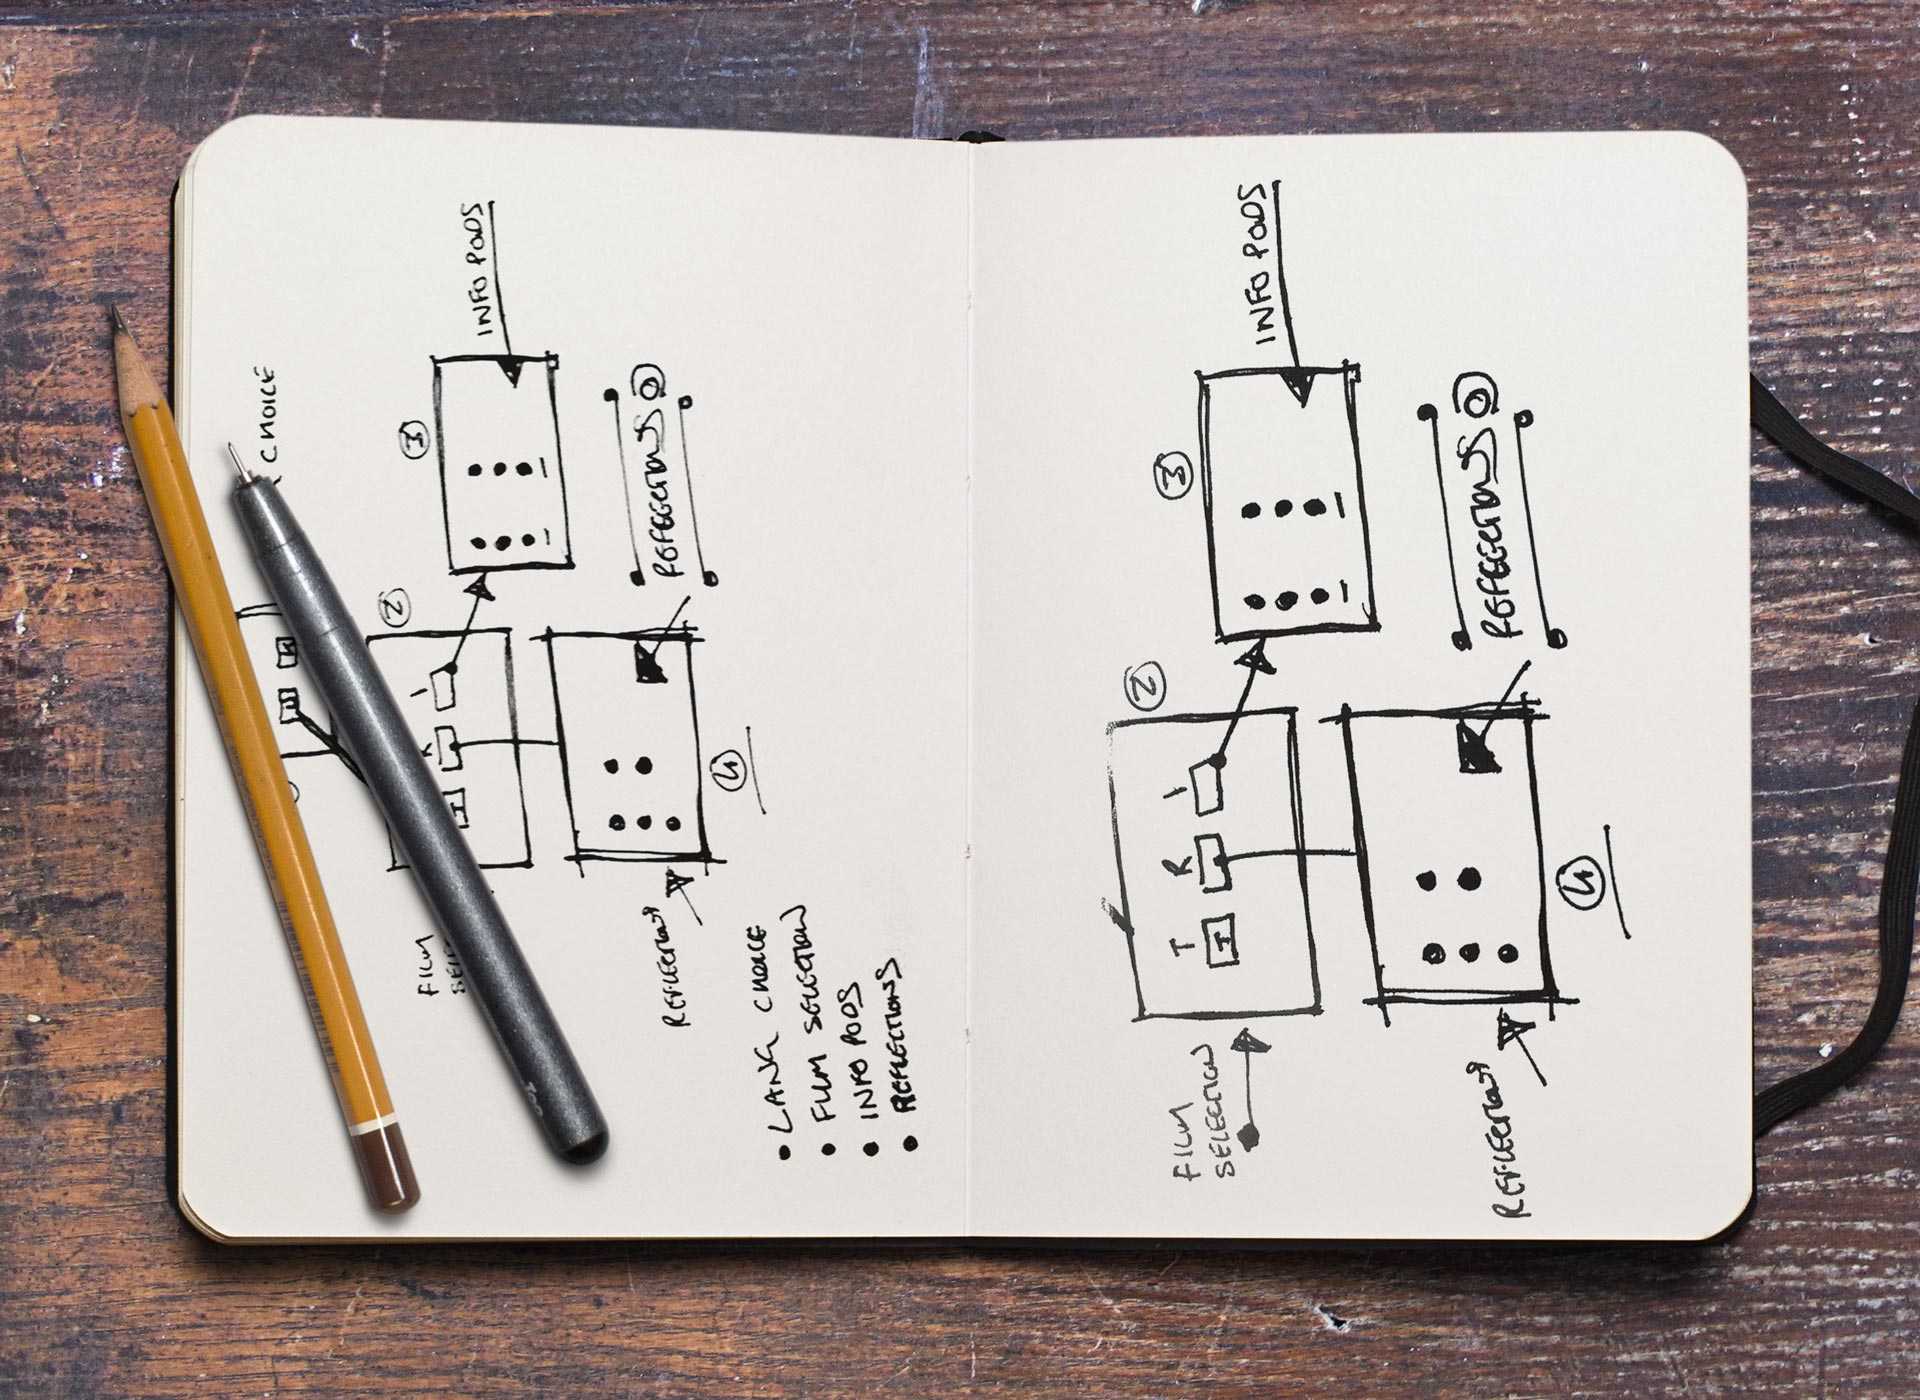 CHOICE
INFO PODS
3
2
REFLECTIONS
FILM
REFLECTIONS
4
• LANG CHOICE
• FILM SELECTION
• INFO PODS
• REFLECTIONS
INFO PODS
3
2
T R I
I
REFLECTIONS
FILM
SELECTION
REFLECTIONS
4